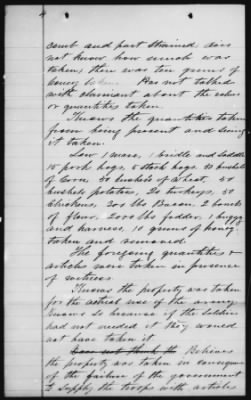 comb and part strained does
not know how much was
taken, there was ten gums of
honey Has not talked
with claimant about the value
or quantities taken.
Knows the quantities taken
from being present and seeing
it taken.
Saw 1 mare, 1 bridle and saddle
15 pork hogs, 5 stock hogs, bushels
of Corn, 30 bushels of Wheat, 50
bushels potatoes, 20 turkeys, 50
Chickens, 200 lbs Bacon, 2 barrels
of flour, 2000 lbs fodder, 1 buggy
and harness, 10 gums of honey
taken and removed.
The foregoing quantities &
articles were taken in presence
of witness.
Knows the property was taken
for the actual use of the army
Knows so because if the soldiers
had not needed it they would
not have taken it
Does not think th Believes
the property was taken in consequence
of the failure of the government
to supply the troops with articles